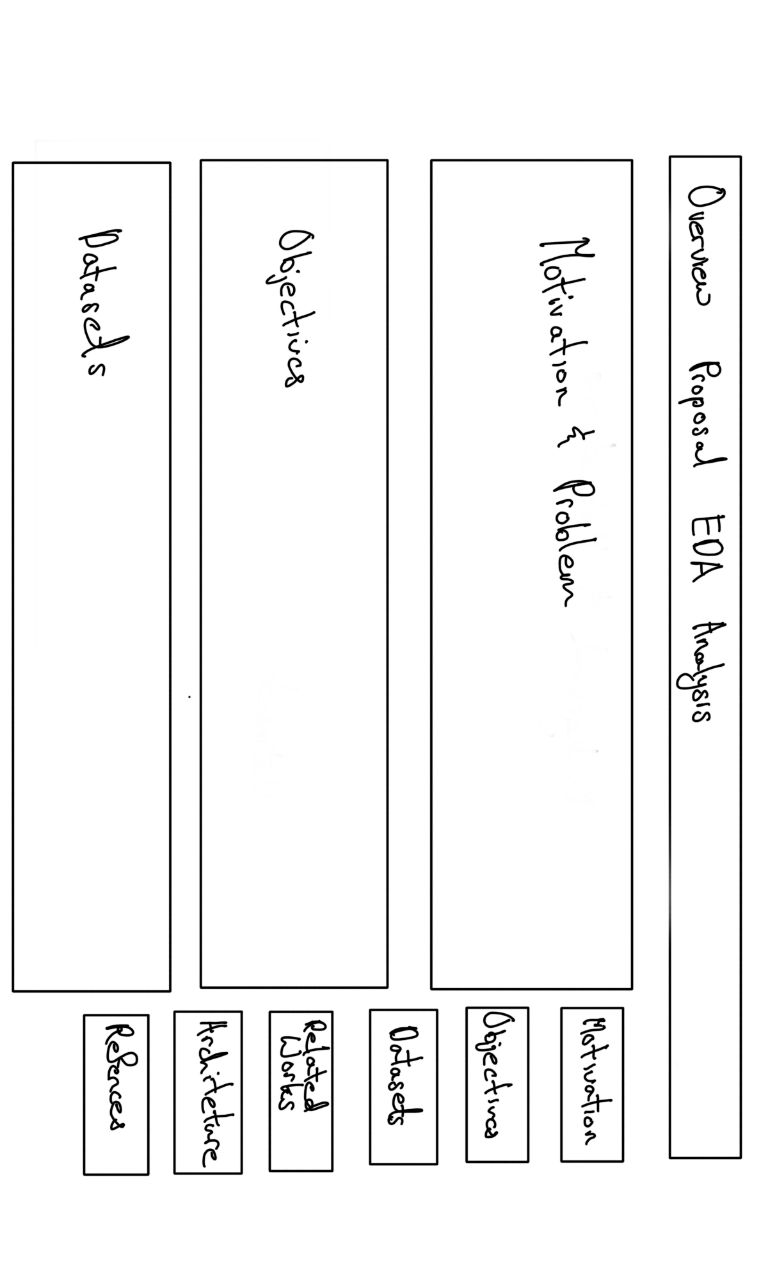 Overview Proposal EDA Analysis
Motivation & Problem
Objectives
Datasets
Motivation
Objectives
Datasets
Related
Works
Architeture
Refences